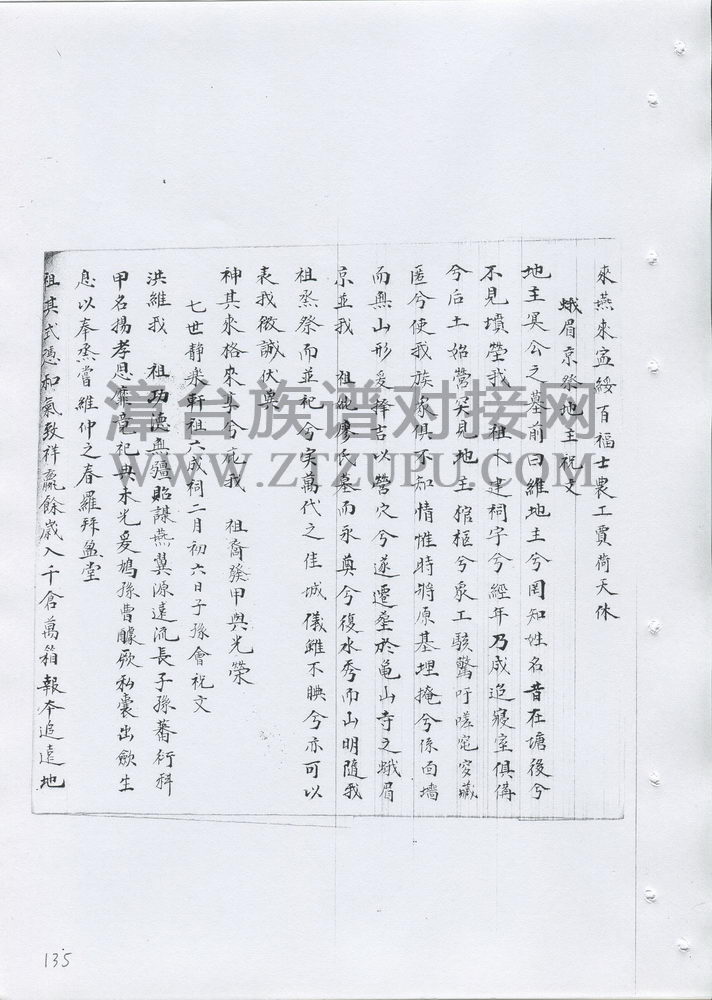 來燕來寍綏百福士農工賈荷天休
蛾眉京祭地主祝文
地主冥公之墓前曰維地主兮罔知姓名昔在塘後兮
不見墳塋我 祖卜建祠宇兮經年乃成迨寢室俱備
兮后土始營突見地主棺柩兮衆工駭驚吁嗟窀穸藏
匿兮使我族衆俱不知情惟時將原基埋掩兮係面墻
而無山形爰擇吉以營穴兮遂遷塋於龜山寺之蛾眉
京並我 祖妣廖氏墓而永奠兮復水秀而山明隨我
祖烝祭而並祀兮实萬代之佳城儀雖不腆兮亦可以
表我微誠伏冀
神其來格來享兮 我 祖裔發甲與光榮
七世静樂軒祖六成祠二月初六日子孫會祝文
洪維我 祖功德無疆貽謀燕翼源遠流長子孫蕃衍科
甲名揚孝思 祀典未光爰鳩孫曹醵厥私囊出飲生
息以奉烝嘗維仲之春羅拜盈堂
祖其式憑和氣致祥贏餘歲入千倉萬箱報本追遠地
漳台族谱对接网
WWW.ZTZUPU.COM
135